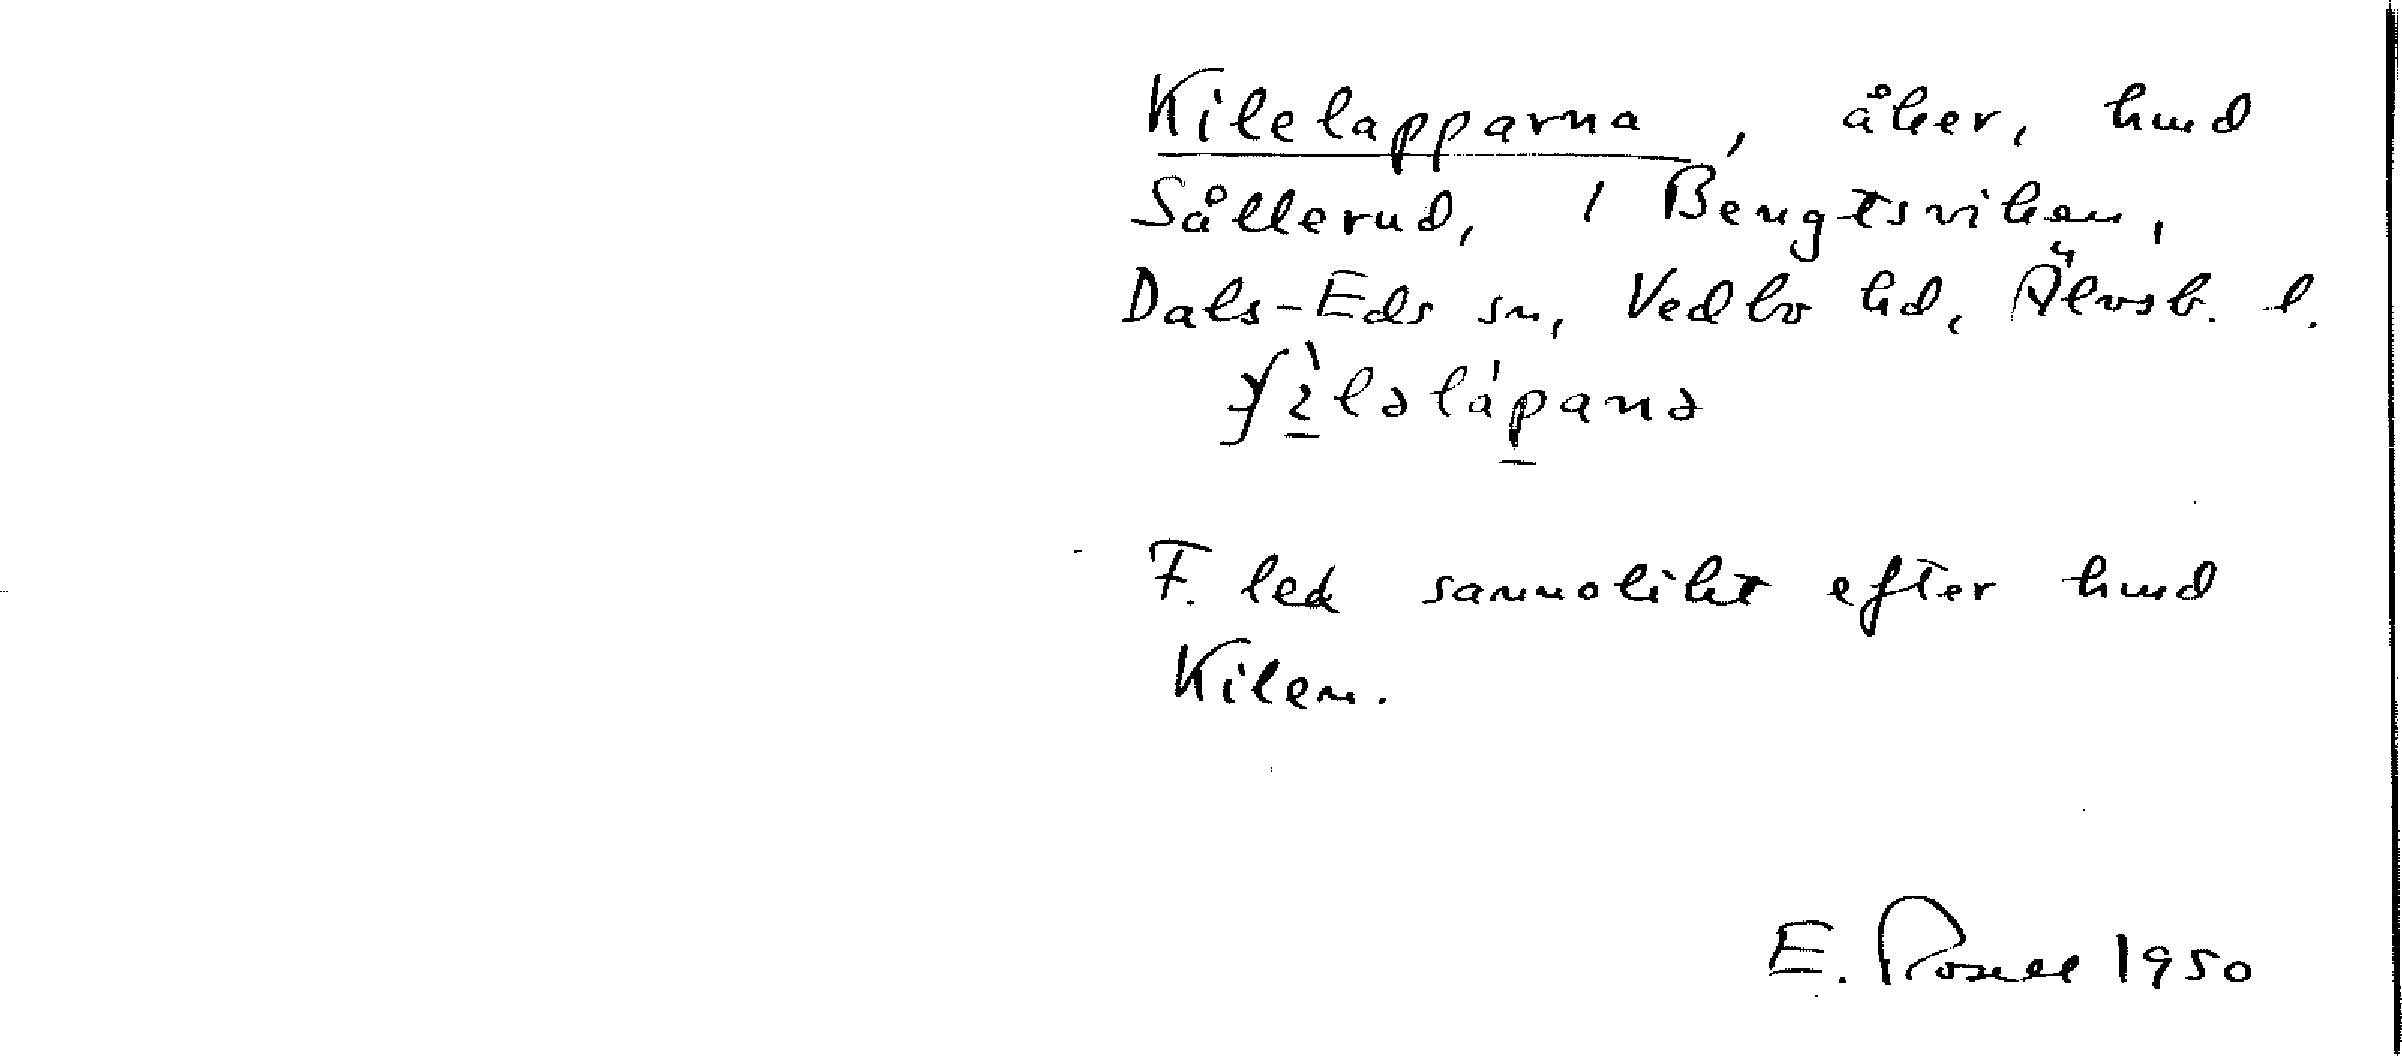 Kilelapparna, åker, hmd
Sållerud, 1 Bengtsviken,
Dals-Eds sn, Vedbo hd, Älvsb. l.
F. led sannolikt efter hmd
Kilen.
E. Rosell 1950